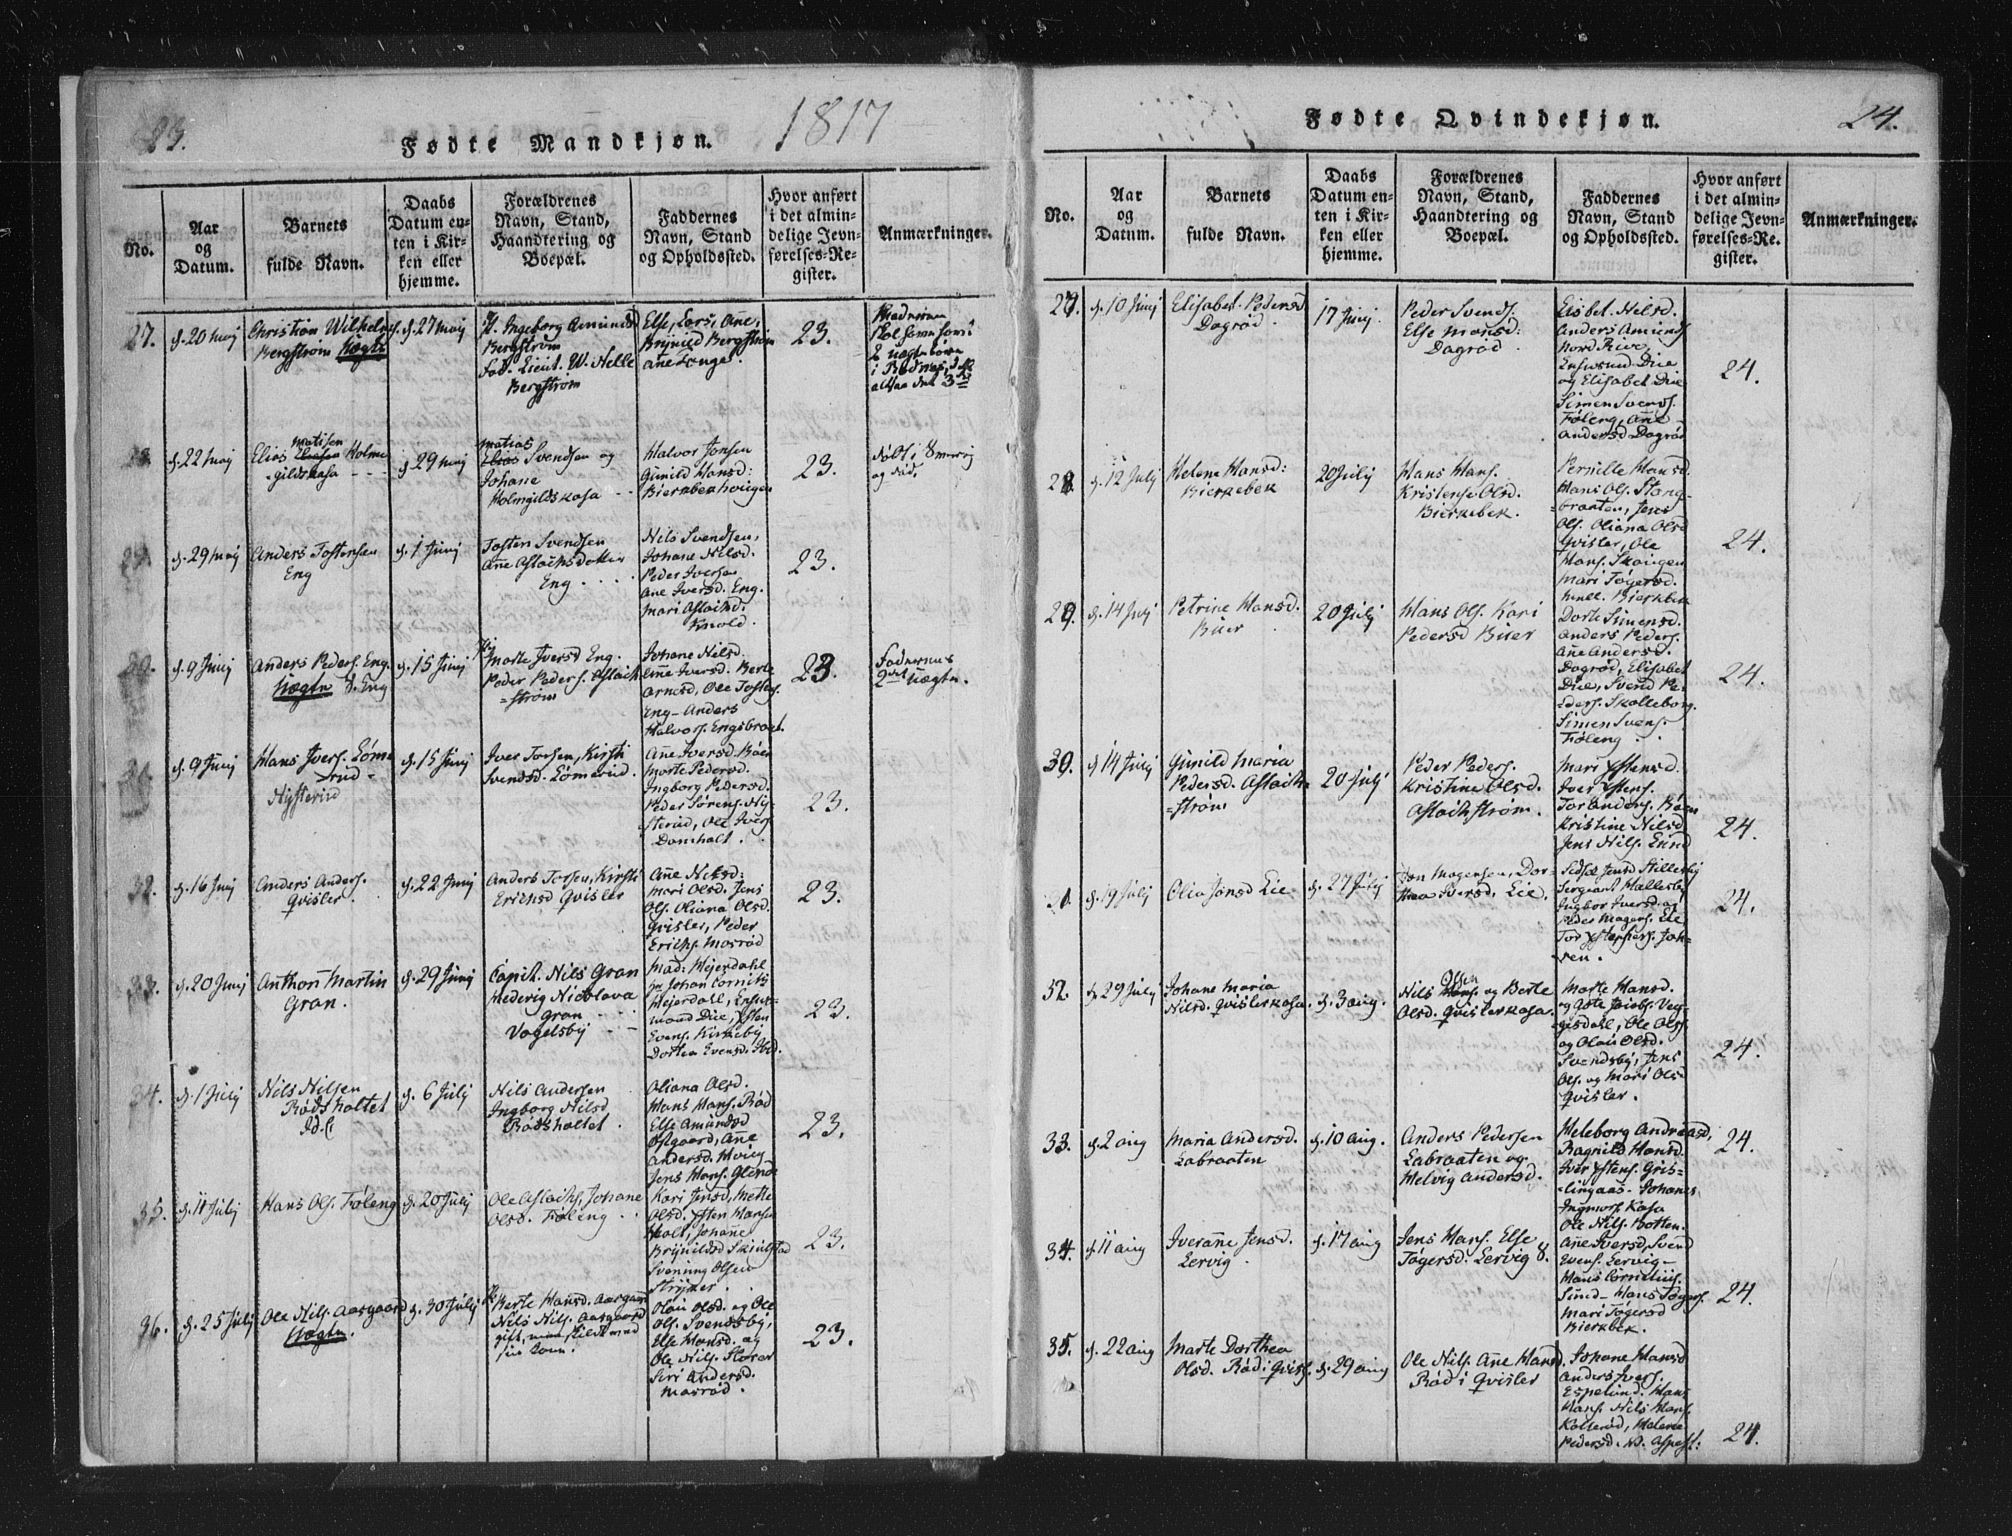 23.
Fødte Mandkjøn.
1817
No.
Aar
og
Datum.
Barnets
fulde Navn.
Daabs
Datum en-
ten i Kir-
ken eller
hjemme.
Forældrenes
Navn, Stand,
Haandtering og
Boepæl.
Faddernes
Navn, Stand
og Opholdssted.
Hvor anført
i det almin-
delige Jevn-
førelses-Re-
gister.
Anmærkninger.
27.
d. 20 maj
Christian Wilhelm
Bergstrøm Uægte
d. 27 maj
Ingeborg Amunds
Bergstrøm
Fad. Lieut. W. Helle
Bergstrøm
Else, Lars, Ane,
Brynild Bergstrøm
Ane Fange.
23.
2 uægte børn
d. 22 maj
Elias Matisen Holm-
gildskasa
d. 29 maj
Matias
Svendsen og
Johane
Holmgildskasa
Halvor Jonsen
Gunild Hansd:
23.
Født i 8 maaned
og død.
d. 29 maj
Anders Tostensen
Eng
d. 1 Junj
Tosten Svendsen
Ane Aslachsdatter
Eng
Nils Svendsen,
Johane Nilsd.
Peder Iversen
Ane Iversd. Eng.
Mari Aslachsd.
Knold.
23.
30.
d. 9 Junj
Anders Peders. Eng.
Uægte d. Eng
d. 15 Junj
Marte Iversd Eng.
Peder Peders. Aslach
=strøm
Johane Nilsd.
Ane Iversd. Berte
Arnesd, Ole Tostens
Eng - Anders
Halvors. Engsbraat.
23.
Fadrenes
2det Uægte.
31.
d. 9 Junj
Hans Ivers. Lôme
rud
Hysterud
d. 15 Junj
Iver Torsen, Kirsti
Svendsd. Lømerud.
Ane Iversd. Bøen
Marte Pedersd.
Ingborg Pedersd.
Peder Sørens. Hy-
sterud, Ole Ivers.
Damholt.
23.
32.
d. 16 Junj
Anders Anders.
Qvisler
d. 22 Junj
Anders Torsen, Kirsti
Erichsd Qvisler
Ane Nilsd:
Mari Olsd. Jens
Ols. Oliana Olsd.
Qvisler, Peder
Erichs. Mosrød
23.
33.
d. 20 Junj
Anthon Martin
Gran.
d. 29 Junj
Capit. Nils Gran
Hedevig Nicolava
Gran
Vogelsbÿ
Mad: Mejerdahl
Mejerdall,
mand Die, Ÿsten
Evens. Kirkebÿ
Dorthea Evensd. Ibid.
23.
34.
d. 1 Julj
Nils Nilsen
Rødsholtet
d. 6 Julj
Nils Andersen
Ingborg Nilsd
Rødsholtet.
Oliana Olsd.
Hans Hans. Rød
Else Amundsd
Østgaard, Ane
Andersd. Hvieg
Jens Hans. Glende
23.
35.
d. 11 Julj
Hans Ols. Føleng
d. 20 Julj
Ole Aslachs. Johane
Olsd. Føleng
Kari Jensd, Mette
Olsd. Ÿsten Hansen
Holt, Johane
Brynildsd Skiulstad
Svening Olsen
Strÿker
23.
36.
d. 25 Julj
Ole Nils. Aasgaard
Uægte.
d. 30 Julj
Berte Hansd. Aasgaard
Nils Nils. Aasgaard
gift, skildt med
sin Kone.
Olau Olsd. og Ole
Ols. Svendsbÿ,
Else Hansd. og
Ole Nils.
Siri Andersd.
Mosrød.
23.
Fødte Qvindekjøn.
24.
No.
Aar
og
Datum.
Barnets
fulde Navn.
Daabs
Datum en-
ten i Kir-
ken eller
hjemme.
Forældrenes
Navn, Stand,
Haandtering og
Boepæl.
Faddernes
Navn, Stand
og Opholdssted.
Hvor anført
i det almin-
delige Jevn-
førelses-Re-
gister.
Anmærkninger.
27.
d. 10 Junj
Elisabet Pedersd
Dagrød.
17 Junj
Peder Svends.
Else Hansd:
Dagrød
Lisbet Nilsd.
Anders Amunds
Nord Rive,
Die
og Elisabet Die
Simen Svends.
Føleng, Ane
Andersd Dagrød
24.
28.
d. 12 Julj
Helene Hansd:
Bierkebek
20 Julj
Hans Hans.
Kristense Olsd.
Bierkebek.
Pernille Hansd.
Hans Ols. Stang-
braaten, Jens
Ols. Oliana Olsd
Qvisler, Ole
Hans. Skaugen
Mari Tøgersd.
Bierkebek
24.
29.
d. 14 Julj
Petrine Hansd.
Buer
20 Julj
Hans Ols. Kari
Pedersd Buer
Dorte Simensd.
Anders Peders.
Ane Andersd.
Dagrød, Elisabet
Die, Svend Pe-
ders. Skolleborg
Simen Svens.
Føleng
24.
30.
d. 14 Julj
Gunild Maria
Pedersd. Aslach
=strøm
20 Julj
Peder Peders.
Kristine Olsd.
Aslachstrøm.
Mari Ÿstensd.
Iver Ÿstens.
Tor Anders. Bøen
Kristine Nilsd
Jens Nils. Lund
24.
d. 19 Julj
Olia Jonsd Lie
d. 27 Julj
Jon Mogensen, Dor-
thea Iversd. Lie.
Sidsel Jensd Hillesbÿ
Sergeant Hallesbÿ
Ingbor Iversd. og
Peder Magens. Lie
24.
32.
d. 29 Julj
Johane Maria
Nilsd. Qvislerkasa.
d. 3 aug.
Olsen
Nils og Berte
Olsd. Qvislerkasa.
Marte Hansd.
og Gote Jacobs. Veg-
gisdall, Ole Ols.
og Olau Olsd.
Svendsbÿ, Jens
Ols. og Mari Olsd
Qvisler.
24.
33.
d. 2 aug
Maria Andersd.
Labraaten
d. 10 aug.
Anders Pedersen
Labraaten og
Helvig Andersd.
Heleborg Andreasd,
Ragnild Hansd.
Iver Ÿstens. Gris-
lingaas. Johanes
Ingmors Kasa
24.
34.
d. 11 aug
Iverane Jensd.
Lervig
d. 17 aug
Jens Hans. Else
Tøgersd. Lervig ø.
Ole Nils. Botten.
Ane Iversd, Svend
Evens. Lervig-
Hans Cornelius.
Sund- Hans Tøgers.
Mari Tøgersd
Bierkbek.
24.
35.
d. 22 aug
Marte Dorthea
Olsd. Rød i Qvisl.
d. 29 aug
Ole Nils. Ane Hansd.
Rød i Qvisler
Johane Hansd
Anders Ivers.
Espelund. Hans
Hans. Nils Hans.
Kallerød, Malene
Pedersd.
24.